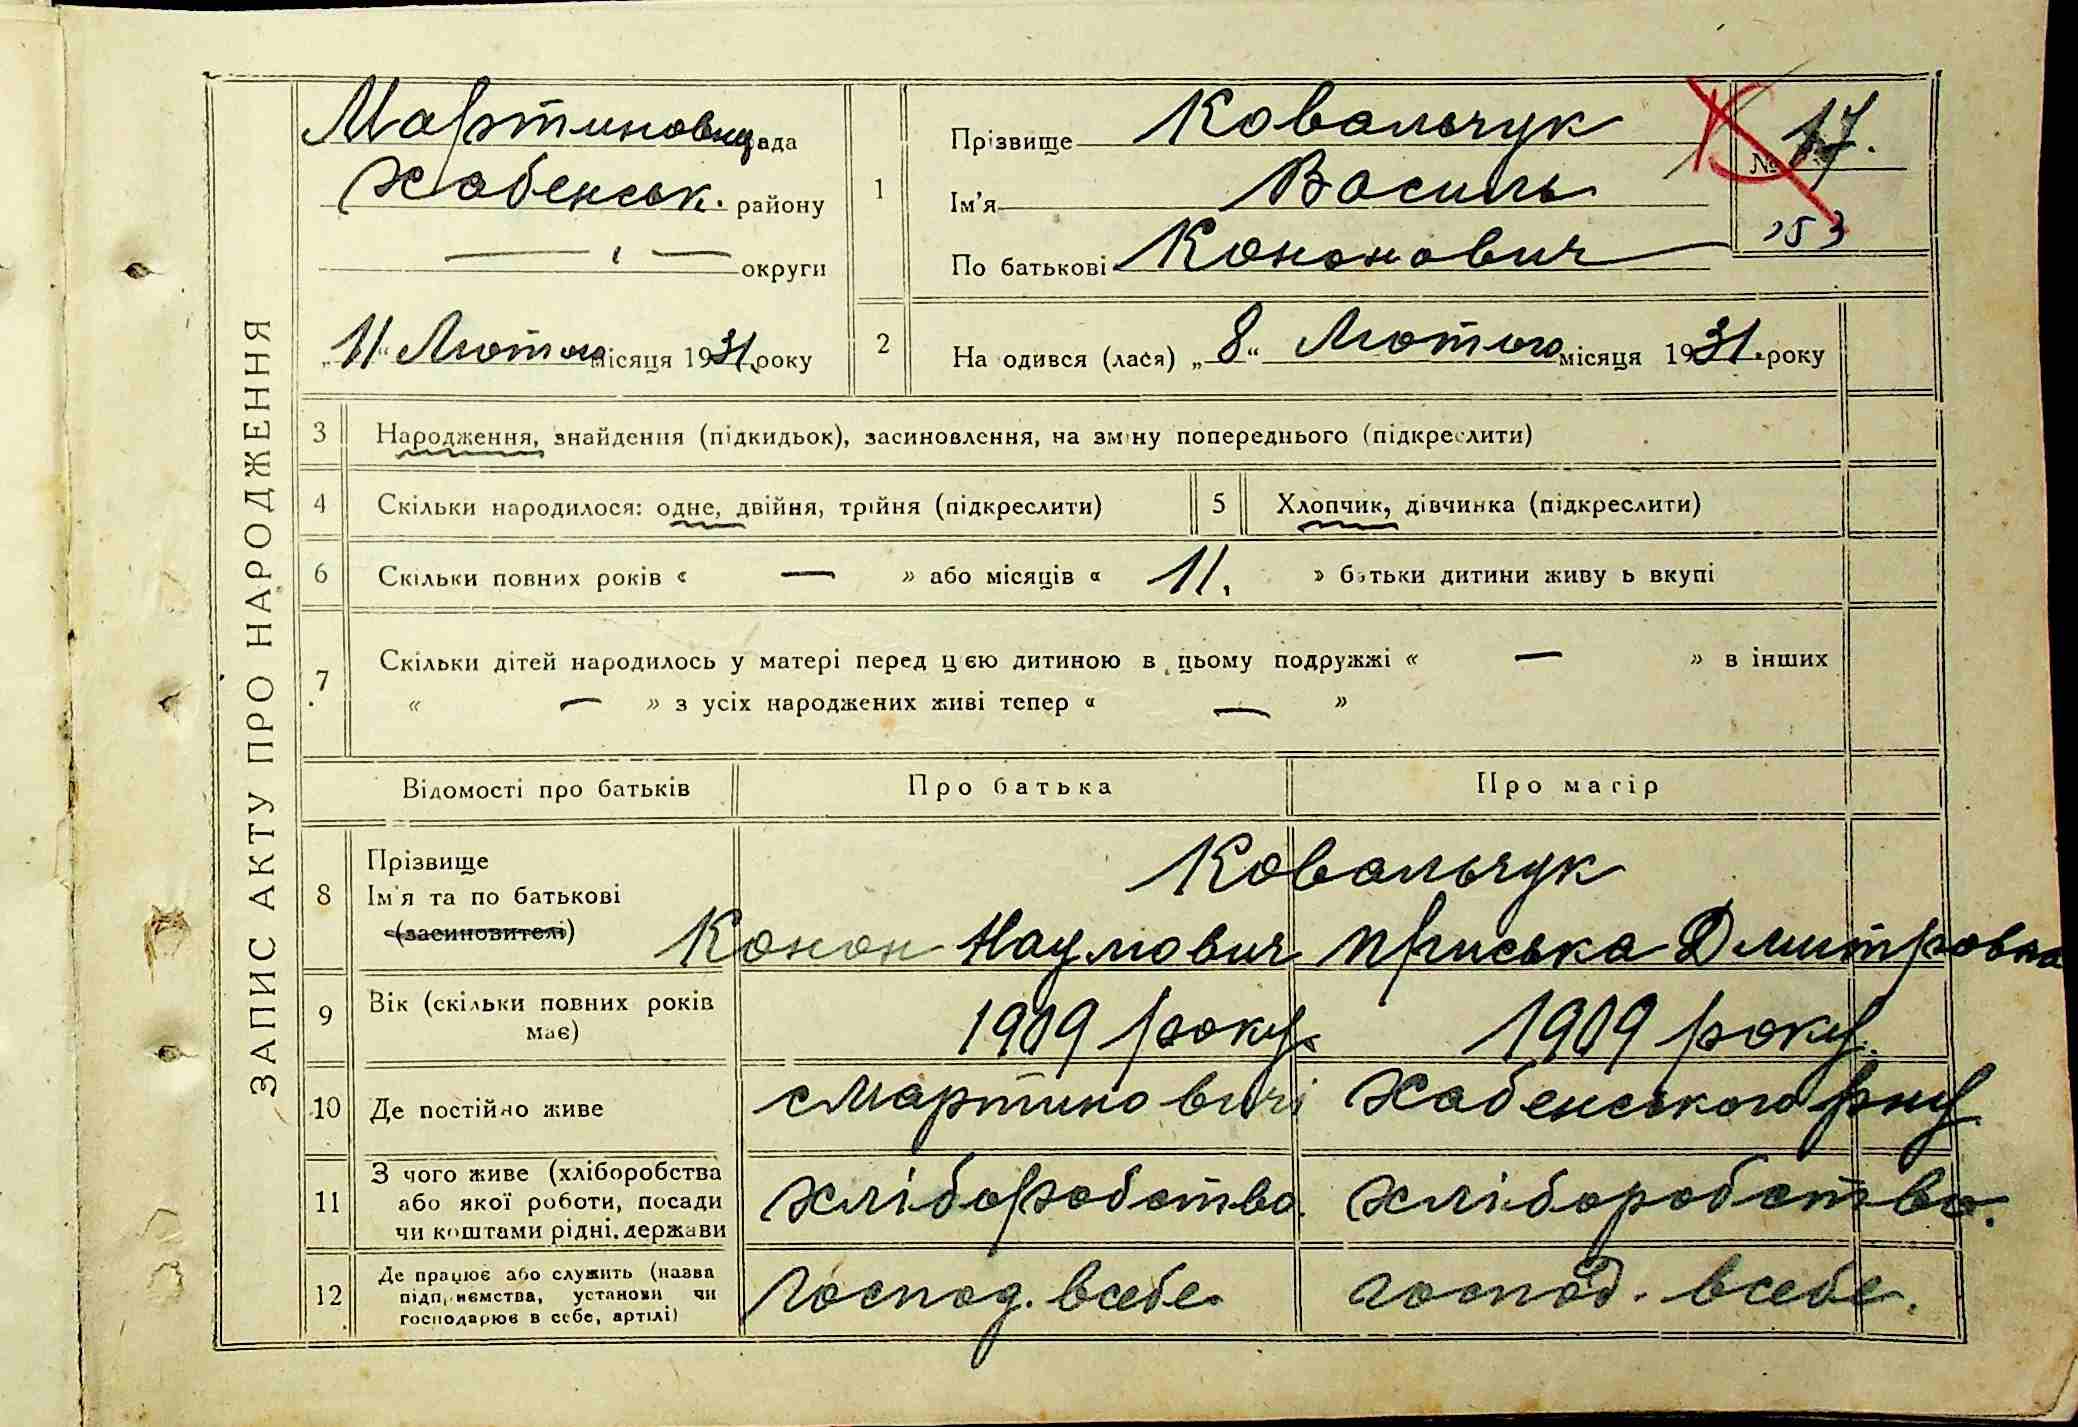 ЗАПИС АКТУ ПРО НАРОДЖЕННЯ
Мартиновиц ада
Хабенськ. району
округи
„11“ Лютого місяця 1931. року
1
Прізвище Ковальчук
Ім'я Василь
По батькові Кононович
№ 17.
253
2
На одився (лася) „8“ Лютого місяця 1931. року
3 Народження, знайдення (підкидьок), засиновлення, на зміну попереднього (підкреслити)
4 Скільки народилося: одне, двійня, трійня (підкреслити) 5 Хлопчик, дівчинка (підкреслити)
6 Скільки повних років « — » або місяців « 11. » батьки дитини живу ь вкупі
7 Скільки дітей народилось у матері перед цією дитиною в цьому подружжі « — » в інших
« — » з усіх народжених живі тепер « — »
Відомості про батьків Про батька Про матір
8 Прізвище Ковальчук
Ім'я та по батькові
(засиновителі) Конон Наумович Приська Дмитровна
9 Вік (скільки повних років 1909 року. 1909 року.
має)
10 Де постійно живе с Мартиновичі Хабенського рну
11 З чого живе (хліборобства
або якої роботи, посади хліборобство. хліборобство.
чи коштами рідні, держави
12 Де працює або служить (назва
підприємства, установи чи господ. всебе. господ. всебе.
господарює в себе, артілі)